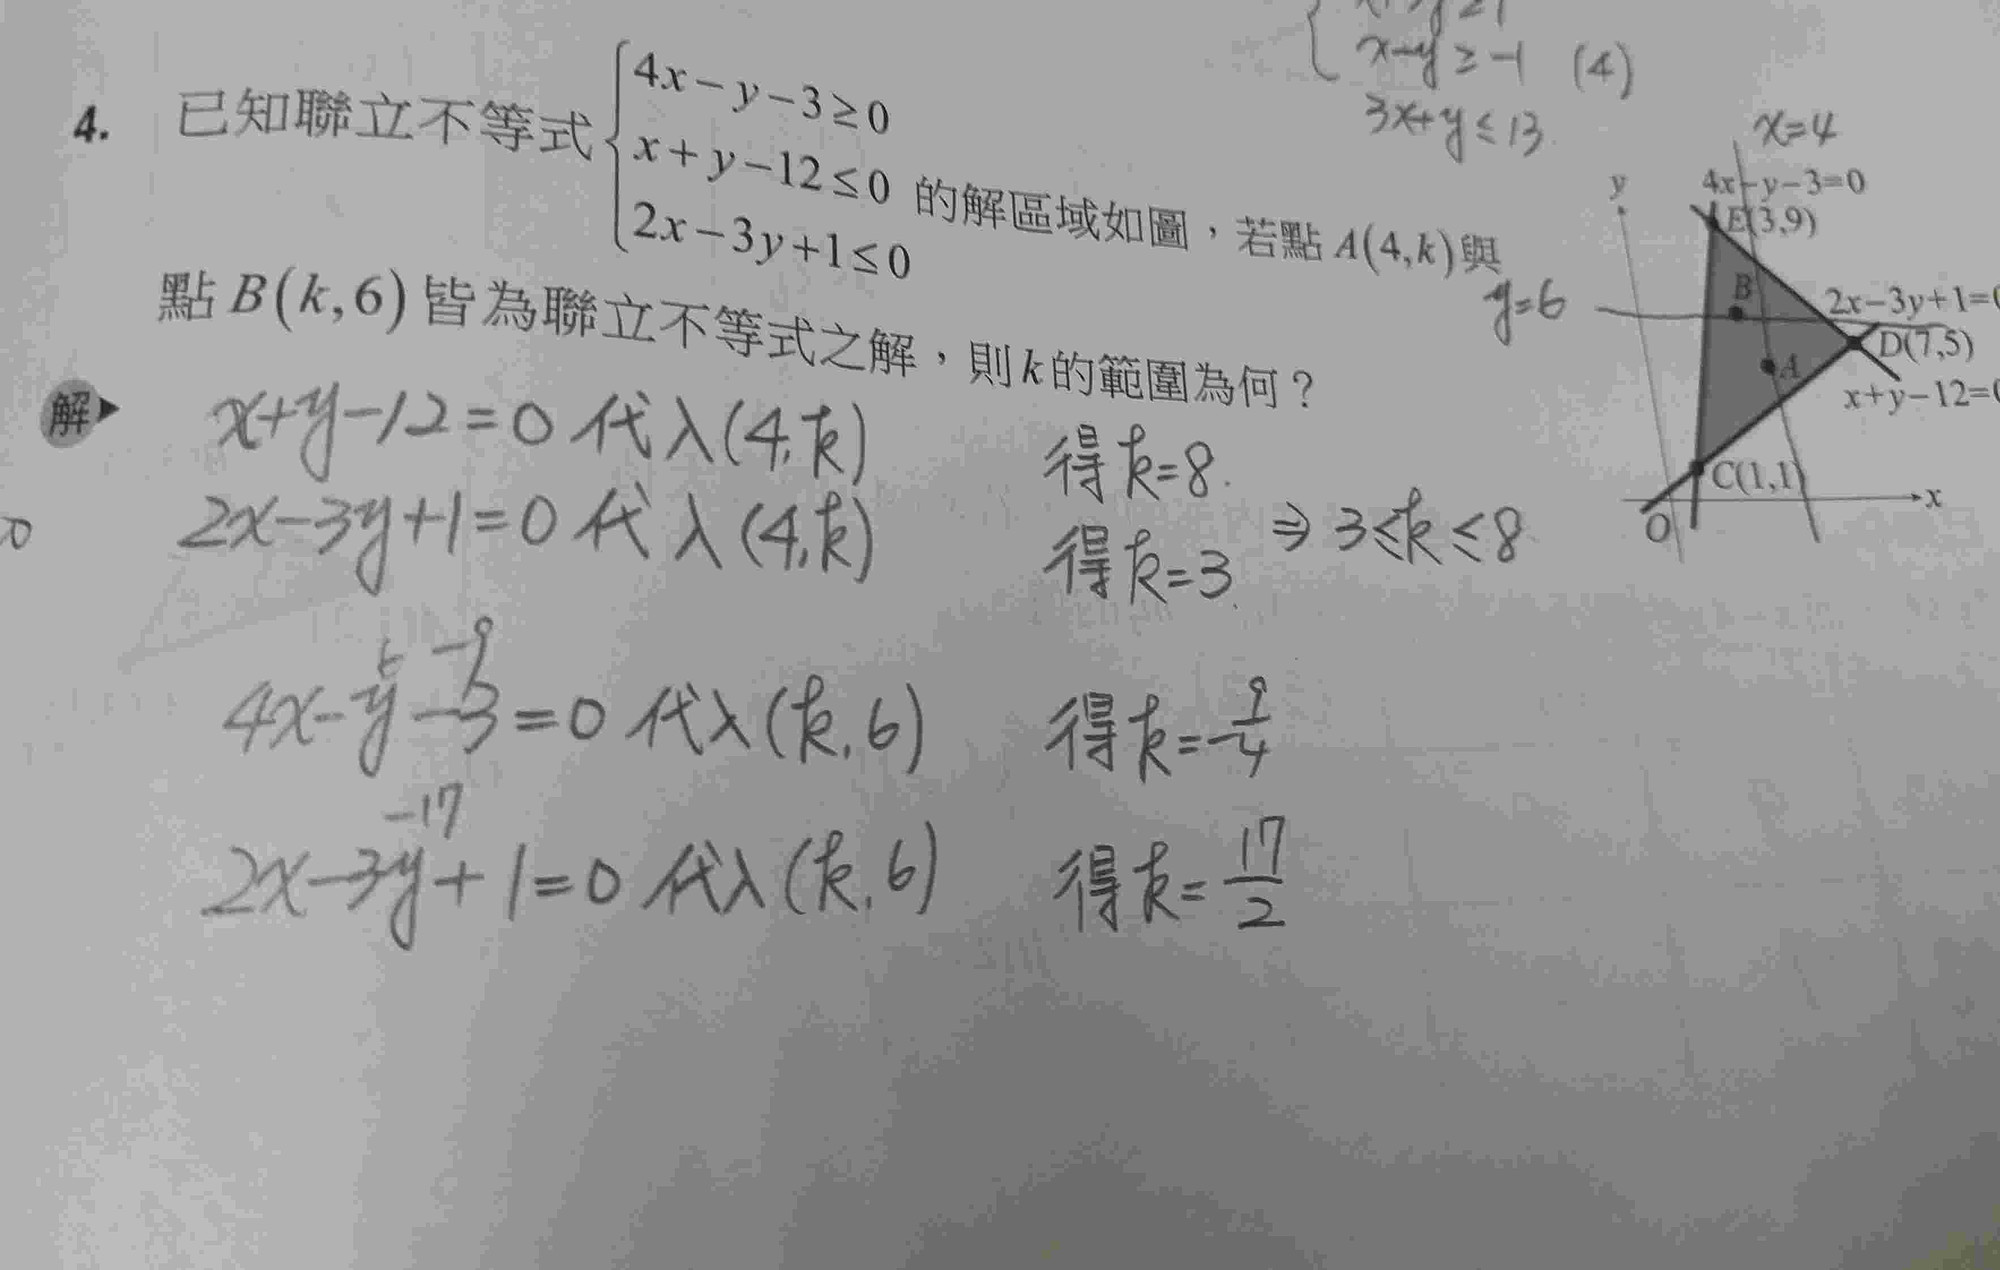 x-y≥-1 (4)
3x+y≤13
4. 已知聯立不等式{4x-y-3≥0
x+y-12≤0
2x-3y+1≤0 的解區域如圖，若點A(4,k)與
點B(k,6)皆為聯立不等式之解，則k的範圍為何？
x=4
y
4x-y-3=0
E(3,9)
B
y=6
2x-3y+1=
D(7,5)
A
x+y-12=
C(1,1)
x
O
解
x+y-12=0 代入(4,k) 得k=8
2x-3y+1=0 代入(4,k) 得k=3 ⇒ 3≤k≤8
-9
4x-y-3=0 代入(k,6) 得k=-9/4
-17
2x-3y+1=0 代入(k,6) 得k=17/2